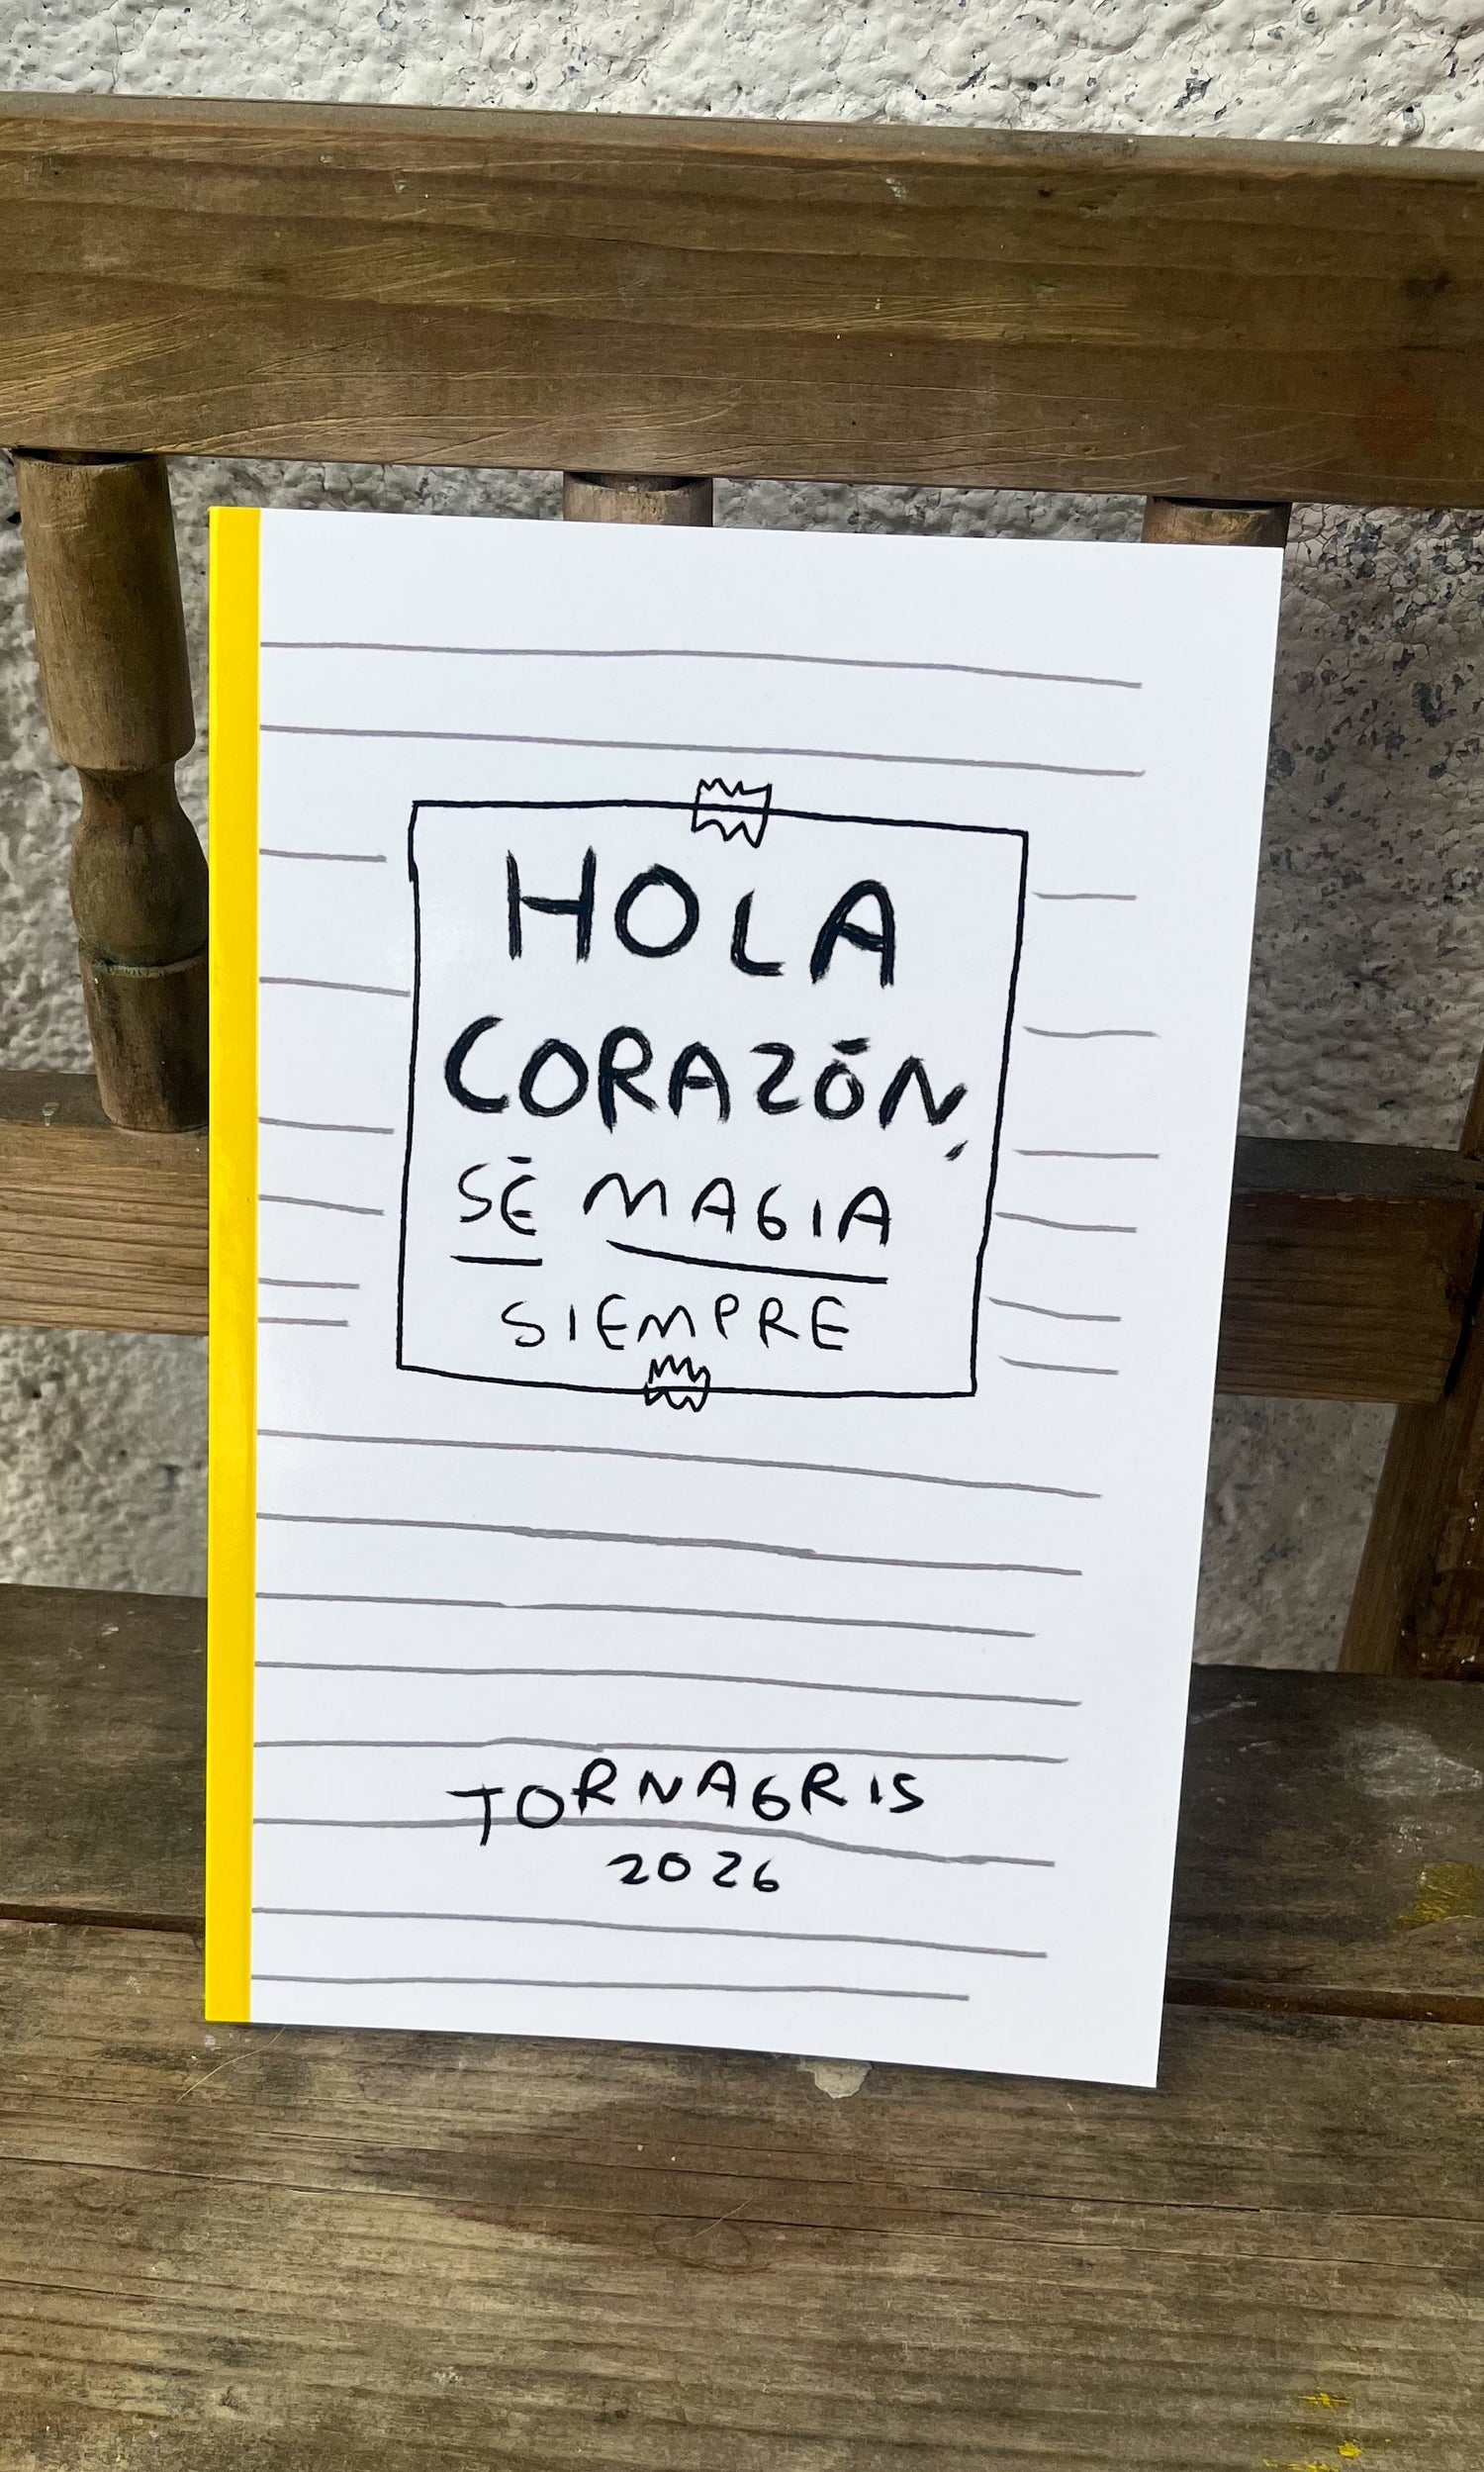 HOLA
CORAZÓN,
SÉ MAGIA
SIEMPRE
TORNAGRIS
2026